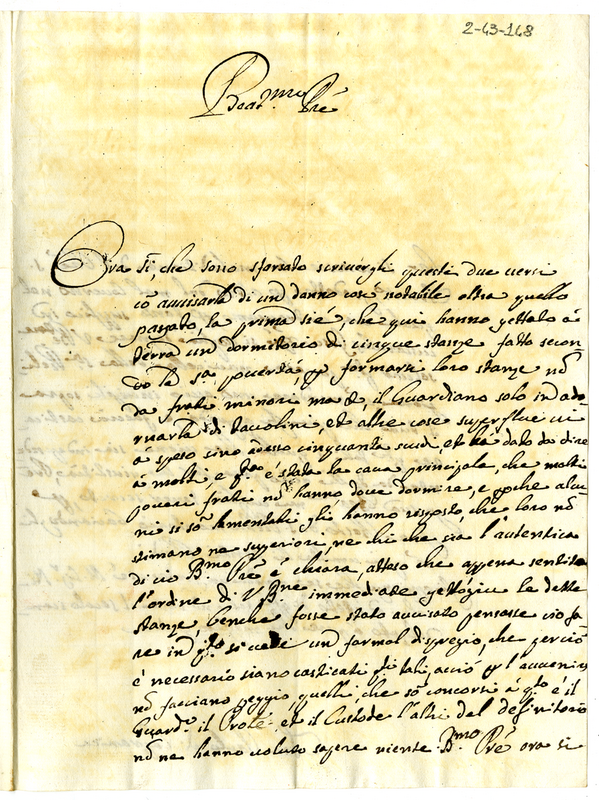 2-43-148
Beat.mo Prē
Ora sì, che sono sforsato scriverghi questi due versi
cō avvisarla di un danno così notabile oltra quello
passato, la prima si è, che qui hanno gettato à
terra un dormitorio di cinque stanze fatto secon
do la s.a povertà, p formarsi loro stanze nō
da frati minori ma il Guardiano solo in ador
narla di tavolini, et altre cose superflue vi
à speso sino adesso cinquanta scudi, et ha dato da dire
à molti, e q.ta è stata la causa principale, che molti
poveri frati nō hanno dove dormire, e pche alcu
ni si sō lamentati gli hanno risposto, che loro nō
stimano ne superiori, ne chi che sia l'autentica
di ciò B.mo Prē è chiara, atteso che appena sentito
l'ordine di V. B.ne immediate gettògiu le dette
stanze benche fosse stato avvisato pensasse ciò fa
re in q.to si vede un formal dispregio, che perciò
è necessario siano casticati q.ti tali, acciò p l'avvenire
nō facciano peggio, quelli, che sō concorsi à q.to è il
Guard.o il Prote et il Custode l'altri del definitorio
nō ne hanno voluto sapere niente B.mo Prē ora si